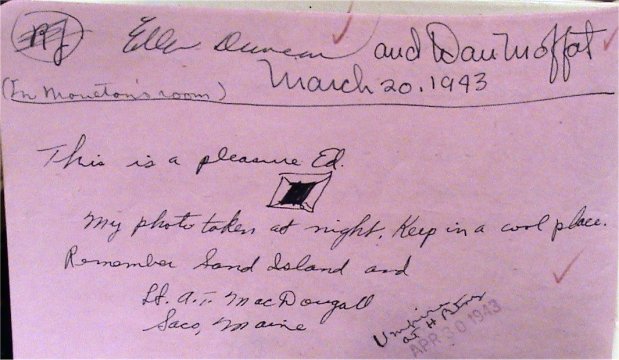 Ellen Duncan and Dan Moffat
March 20, 1943
(In Moncton's room)
This is a pleasure Ed.
My photo taken at night. Keep in a cool place.
Remember Sand Island and
Lt. A.T. MacDougall
Saco, Maine
Umpire
at H Btry
APR 30 1943